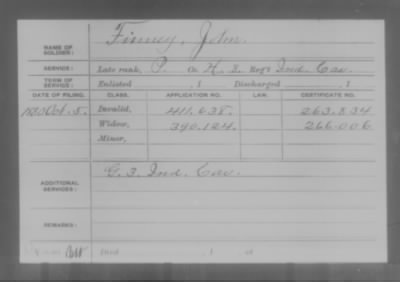 Finney, John.
NAME OF SOLDIER:
SERVICE: Late rank, P. Co. H. 3. Reg't Ind. Cav.
TERM OF SERVICE: Enlisted , 1 Discharged , 1
DATE OF FILING. CLASS. APPLICATION NO. LAW. CERTIFICATE NO.
Oct. 5. Invalid, 411.638. 263.834
Widow, 390.124. 266.006
Minor,
ADDITIONAL SERVICES: G. 3. Ind. Cav.
REMARKS:
Died , 1 at